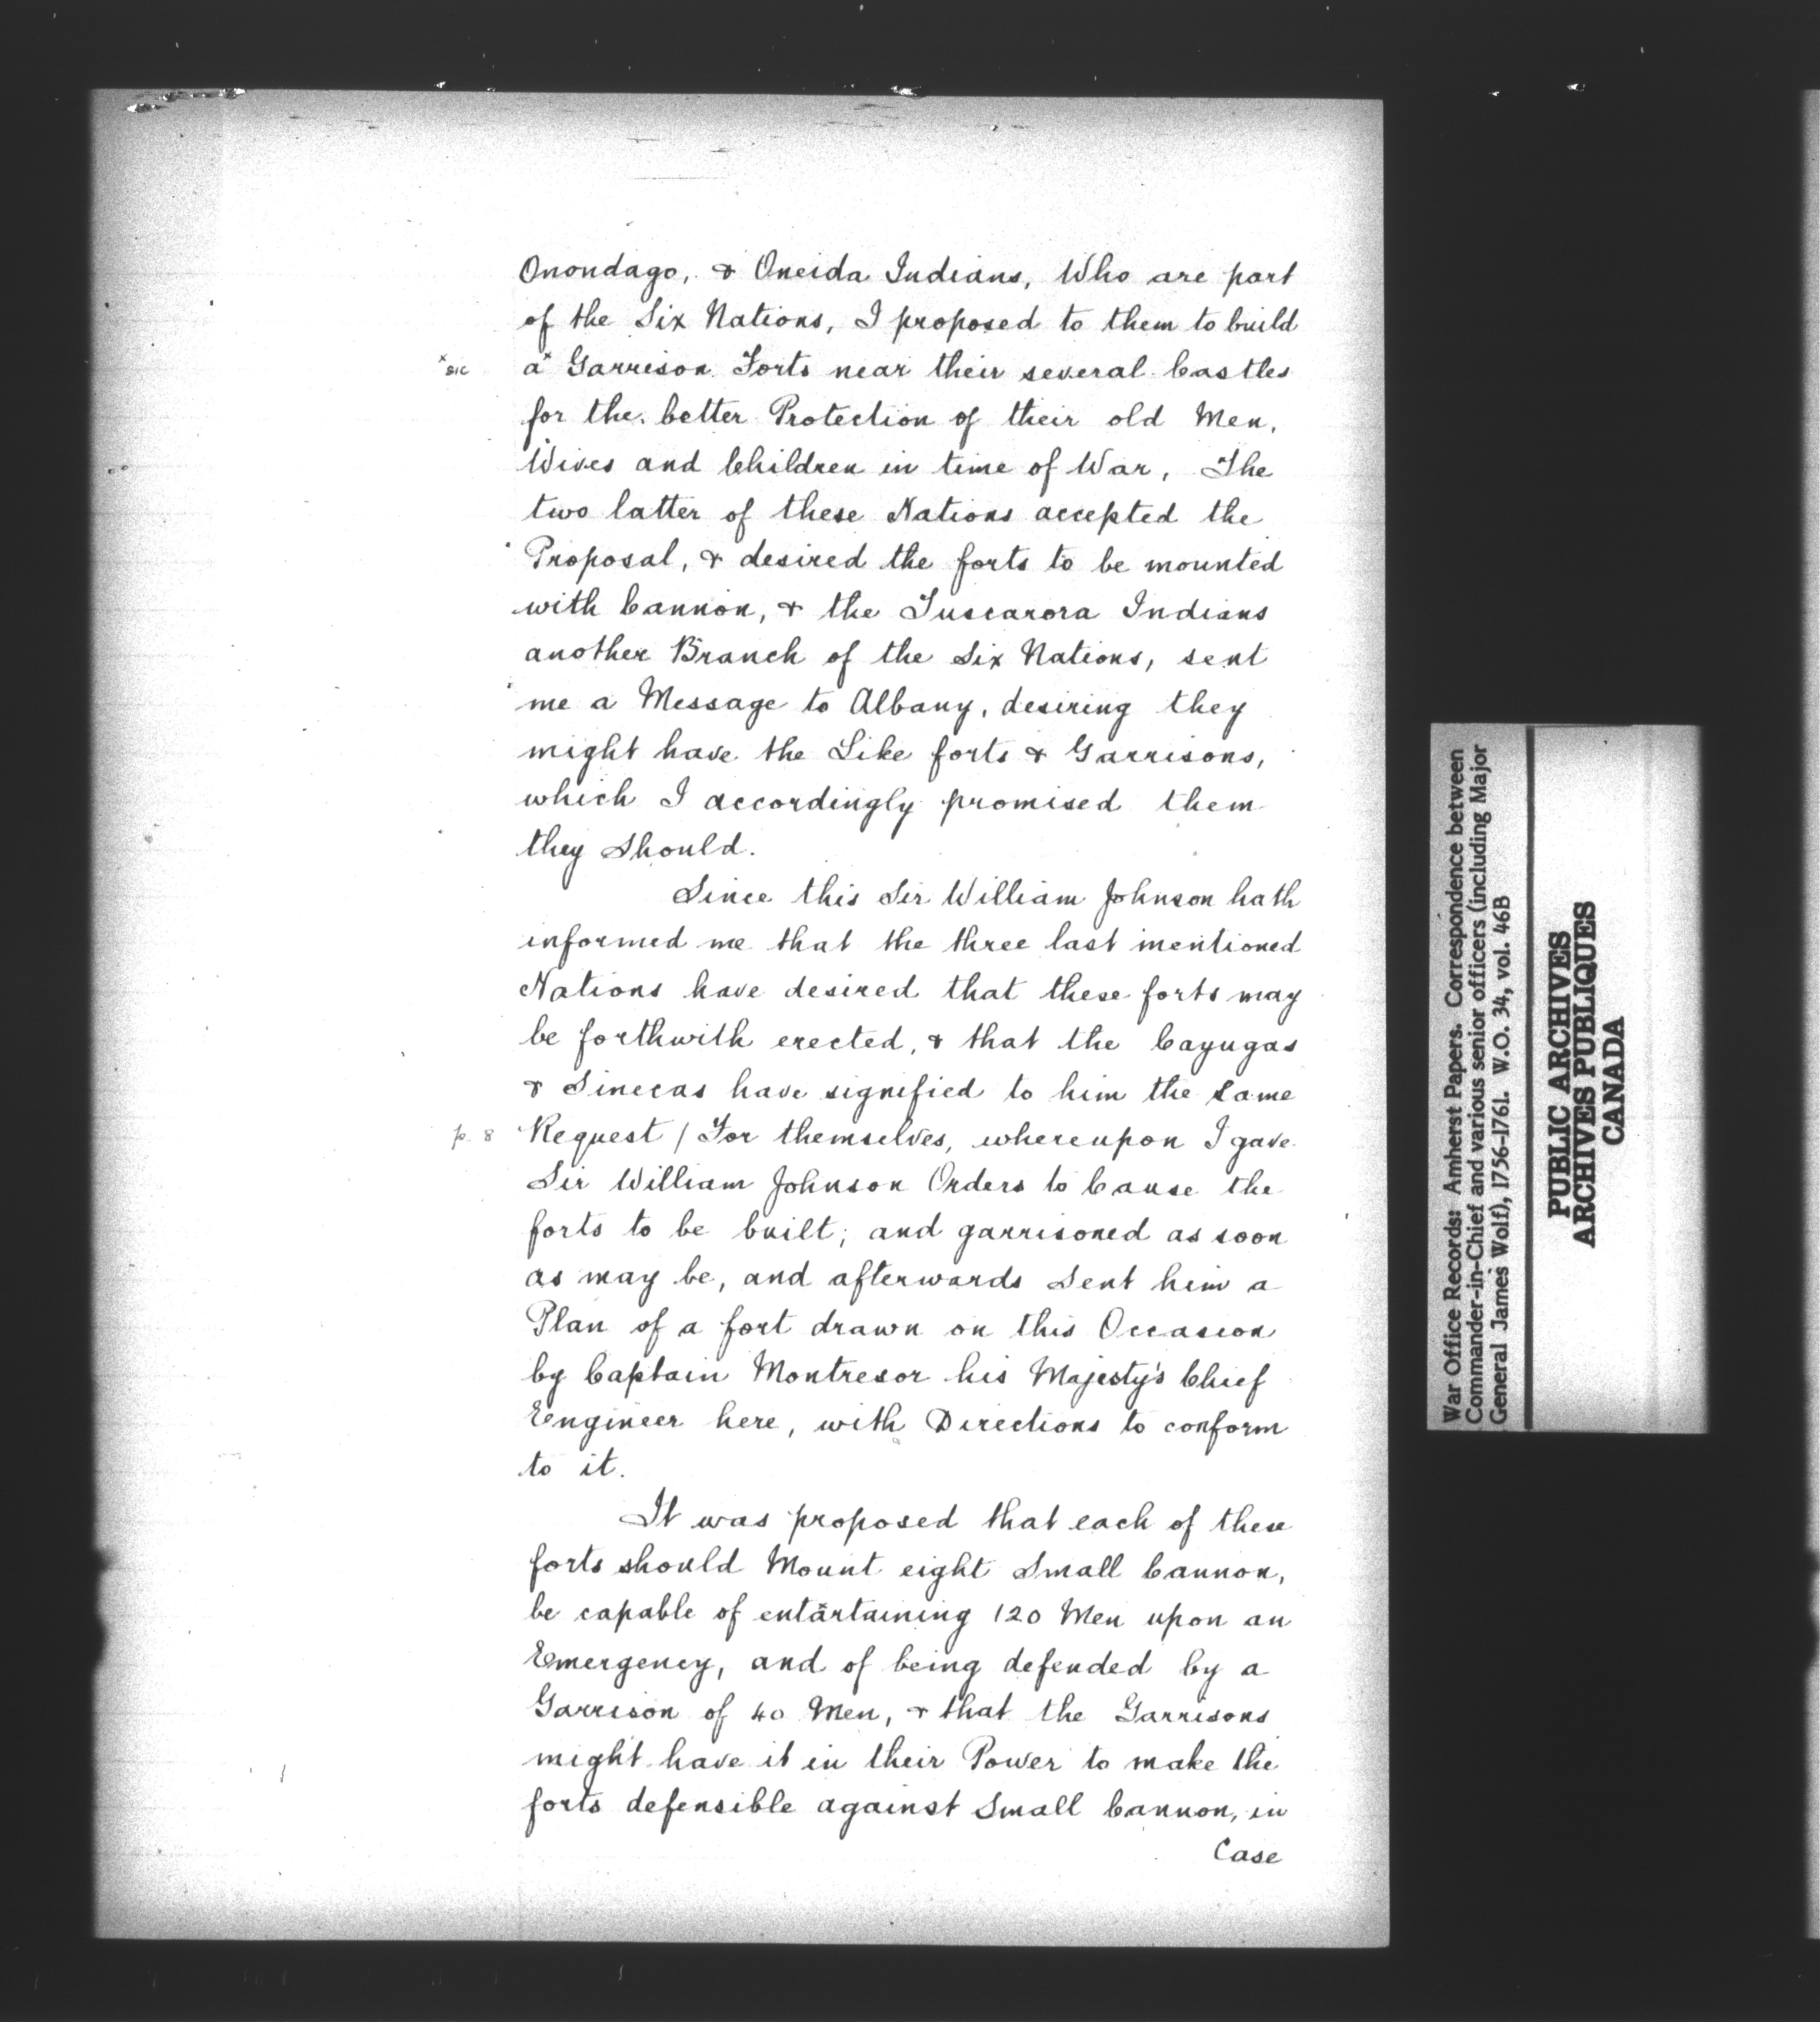 Onondago, & Oneida Indians, Who are part
of the Six Nations, I proposed to them to build
x sic a x Garrison Forts near their several Castles
for the better Protection of their old Men,
Wives and Children in time of War, The
two latter of these Nations accepted the
Proposal, & desired the forts to be mounted
with Cannon, & the Tuscarora Indians
another Branch of the Six Nations, sent
me a Message to Albany, desiring they
might have the Like forts & Garrisons,
which I accordingly promised them
they Should.
Since this Sir William Johnson hath
informed me that the three last mentioned
Nations have desired that these forts may
be forthwith erected, & that the Cayugas
& Sinecas have signified to him the Same
p. 8 Request / For themselves, whereupon I gave
Sir William Johnson Orders to Cause the
forts to be built; and garrisoned as soon
as may be, and afterwards Sent him a
Plan of a fort drawn on this Occasion
by Captain Montresor his Majesty's Chief
Engineer here, with Directions to conform
to it.
It was proposed that each of these
forts should Mount eight Small Cannon,
be capable of entartaining 120 Men upon an
Emergency, and of being defended by a
Garrison of 40 Men, & that the Garrisons
might have it in their Power to make the
forts defensible against Small Cannon, in
Case
War Office Records: Amherst Papers. Correspondence between
Commander-in-Chief and various senior officers (including Major
General James Wolf), 1756-1761. W.O. 34, vol. 46B
PUBLIC ARCHIVES
ARCHIVES PUBLIQUES
CANADA